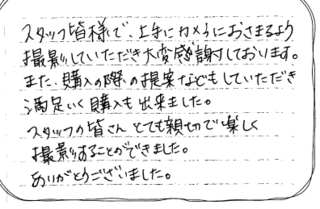 スタッフ皆様で、上手にカメラにおさまるよう
撮影していただき大変感謝しております。
また、購入の際の提案などもしていただき
満足いく購入も出来ました。
スタッフの皆さんとても親切で楽しく
撮影することができました。
ありがとうございました。